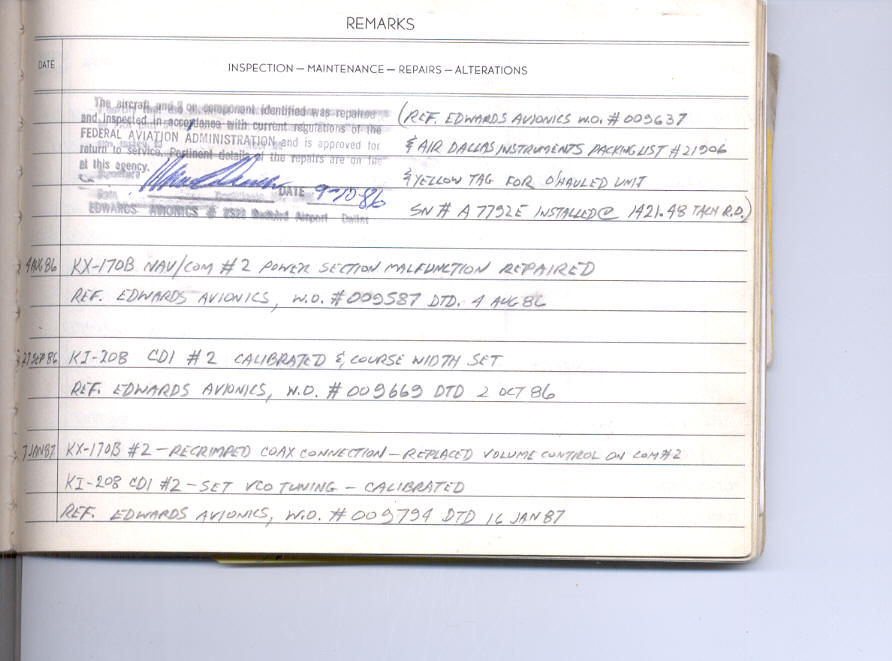 REMARKS
DATE
INSPECTION — MAINTENANCE — REPAIRS — ALTERATIONS
The aircraft and or component identified was repaired
and inspected in accordance with current regulations of the
FEDERAL AVIATION ADMINISTRATION and is approved for
return to service. Pertinent details of the repairs are on file
at this agency.
DATE 9-10-86
EDWARDS AVIONICS Airport Dallas
(REF. EDWARDS AVIONICS W.O. # 009637
& AIR DALLAS INSTRUMENTS PACKING LIST # 21906
& YELLOW TAG FOR O'HAULED UNIT
SN # A 7792E INSTALLED @ 1421.48 TACH R.D.)
4 AUG 86 KX-170B NAV/COM #2 POWER SECTION MALFUNCTION REPAIRED
REF. EDWARDS AVIONICS, W.O. # 009587 DTD. 4 AUG 86
27 SEP 86 KI-208 CDI #2 CALIBRATED & COURSE WIDTH SET
REF. EDWARDS AVIONICS, W.O. # 009669 DTD 2 OCT 86
7 JAN 87 KX-170B #2 — RECRIMPED COAX CONNECTION — REPLACED VOLUME CONTROL ON COM#2
KI-208 CDI #2 — SET VCO TUNING — CALIBRATED
REF. EDWARDS AVIONICS, W.O. # 009794 DTD 16 JAN 87